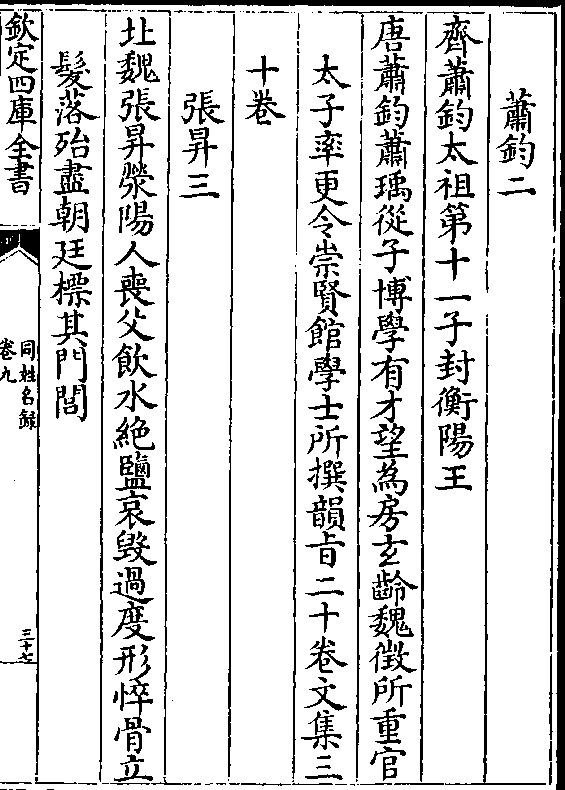 蕭鈞二
齊蕭鈞太祖第十一子封衡陽王
唐蕭鈞蕭瑀從子博學有才望為房玄齡魏徵所重官
太子率更令崇賢館學士所撰韻旨二十卷文集三
十卷
張昇三
北魏張昇滎陽人喪父飲水絶鹽哀毀過度形悴骨立
髮落殆盡朝廷標其門閭
欽定四庫全書
同姓名錄
卷九
三十七